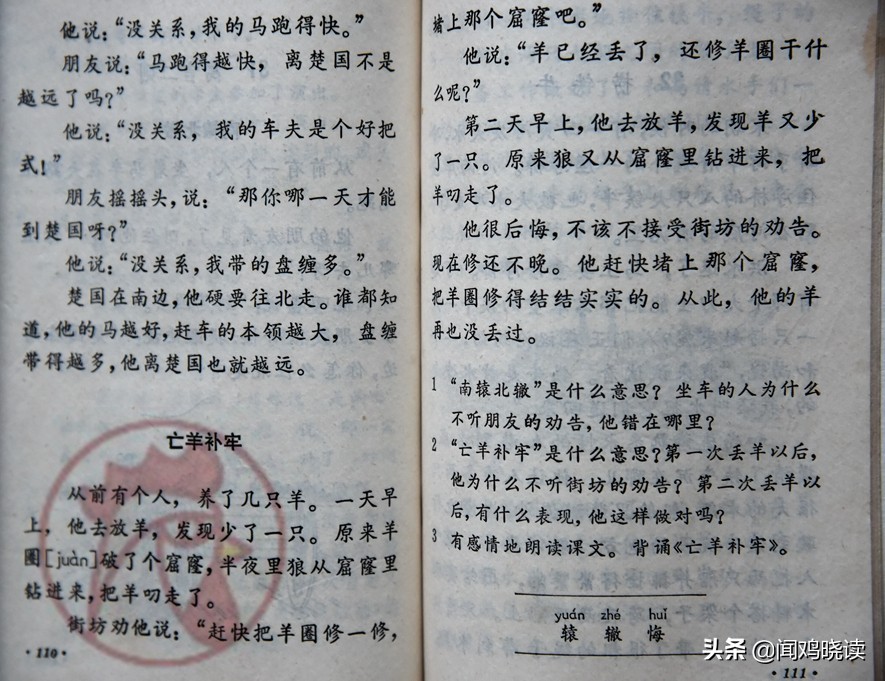 他说：“没关系，我的马跑得快。”
朋友说：“马跑得越快，离楚国不是
越远了吗？”
他说：“没关系，我的车夫是个好把
式！”
朋友摇摇头，说：“那你哪一天才能
到楚国呀？”
他说：“没关系，我带的盘缠多。”
楚国在南边，他硬要往北走。谁都知
道，他的马越好，赶车的本领越大，盘缠
带得越多，他离楚国也就越远。
亡羊补牢
从前有个人，养了几只羊。一天早
上，他去放羊，发现少了一只。原来羊
圈[juàn]破了个窟窿，半夜里狼从窟窿里
钻进来，把羊叼走了。
街坊劝他说：“赶快把羊圈修一修，
·110·
堵上那个窟窿吧。”
他说：“羊已经丢了，还修羊圈干什
么呢？”
第二天早上，他去放羊，发现羊又少
了一只。原来狼又从窟窿里钻进来，把
羊叼走了。
他很后悔，不该不接受街坊的劝告。
现在修还不晚。他赶快堵上那个窟窿，
把羊圈修得结结实实的。从此，他的羊
再也没丢过。
1 “南辕北辙”是什么意思？坐车的人为什么
不听朋友的劝告，他错在哪里？
2 “亡羊补牢”是什么意思？第一次丢羊以后，
他为什么不听街坊的劝告？第二次丢羊以
后，有什么表现，他这样做对吗？
3 有感情地朗读课文。背诵《亡羊补牢》。
yuán zhé huǐ
辕 辙 悔
头条 @闻鸡晓读
·111·